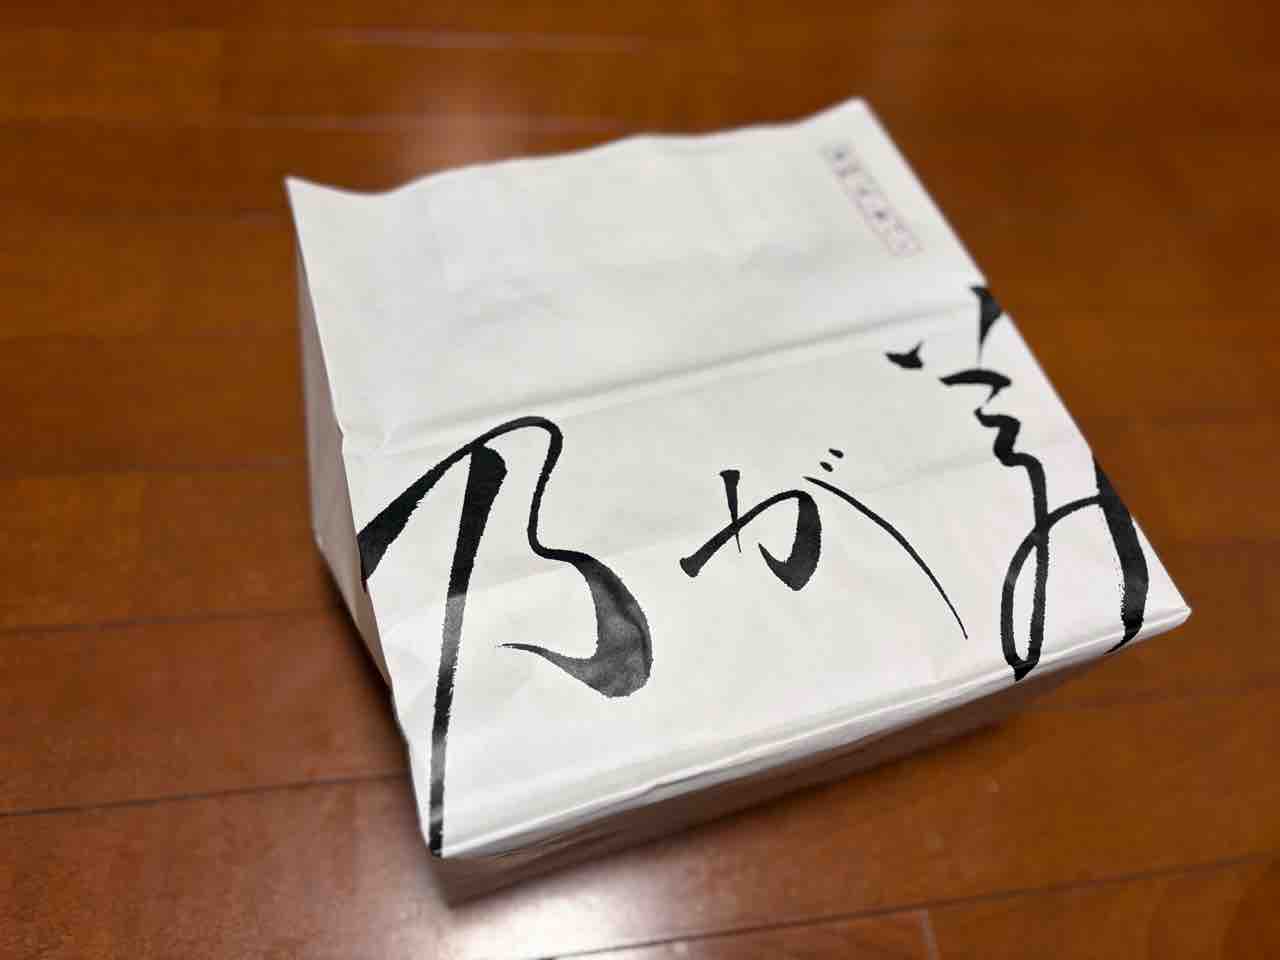 乃が美